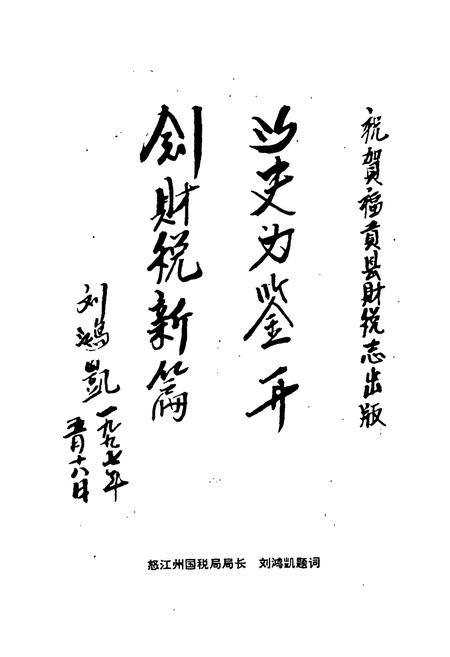 祝贺福貢县财税志出版
以史为鉴开
创财税新篇
刘鸿凯
一九九七年
五月十八日
怒江州国税局局长 刘鸿凯题词